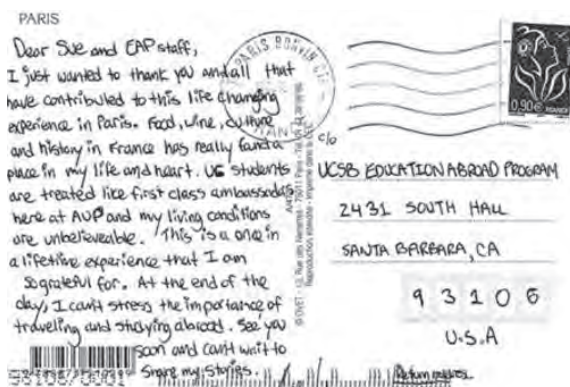 PARIS
Dear Sue and EAP staff,
I just wanted to thank you and all that
have contributed to this life changing
experience in Paris. Food, wine, culture
and history in France has really found a
place in my life and heart. UC students
are treated like first class ambassadors
here at AUP and my living conditions
are unbelieveable. This is a once in
a lifetive experience that I am
so grateful for. At the end of the
day, I can't stress the importance of
traveling and studying abroad. See you
soon and can't wait to
share my stories.
PARIS BONVIN
FRANCE
0,90€
c/o
UCSB EDUCATION ABROAD PROGRAM
2431 SOUTH HALL
SANTA BARBARA, CA
93106
U.S.A
Return address